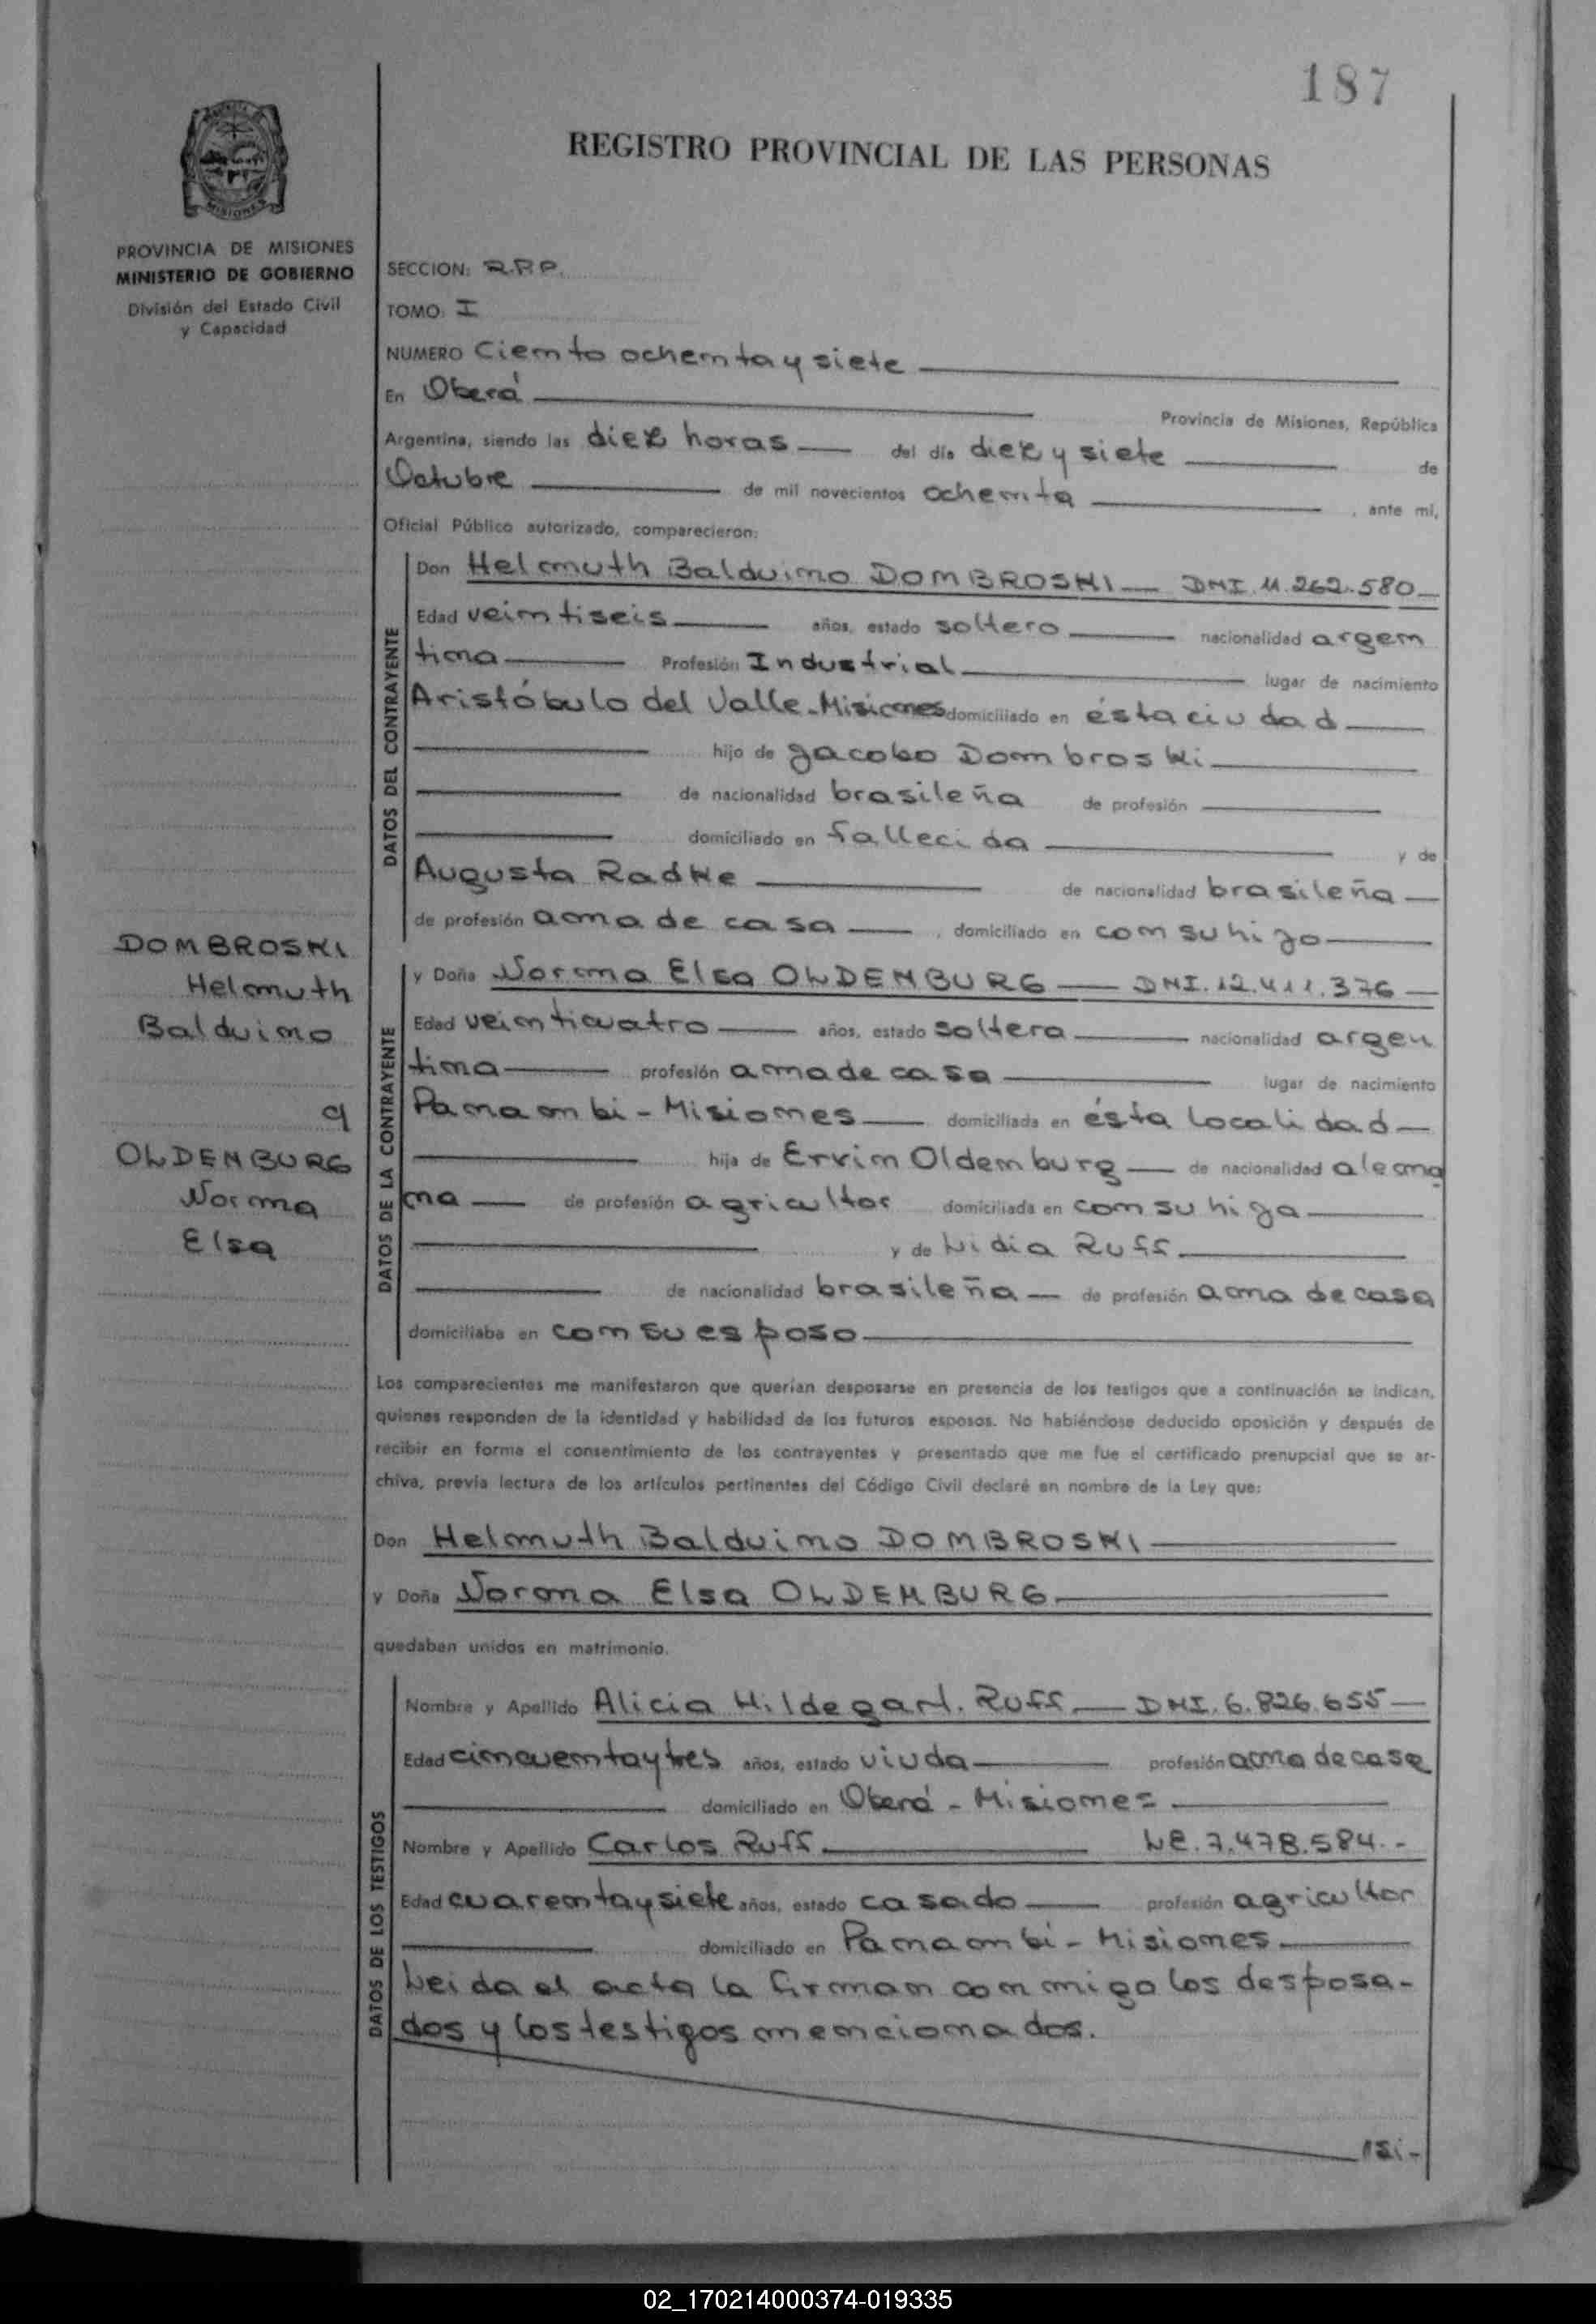 187
REGISTRO PROVINCIAL DE LAS PERSONAS
MISIONES
PROVINCIA DE MISIONES
MINISTERIO DE GOBIERNO
División del Estado Civil
y Capacidad
SECCION: R.P.P.
TOMO: I
NUMERO Ciento ochenta y siete
En Oberá
Provincia de Misiones, República
Argentina, siendo las diez horas del día diez y siete de
Octubre de mil novecientos ochenta, ante mí,
Oficial Público autorizado, comparecieron:
DATOS DEL CONTRAYENTE
Don Helmuth Balduino DOMBROSKI DNI 11.262.580
Edad veintiseis años, estado soltero nacionalidad argen
tina Profesión Industrial lugar de nacimiento
Aristóbulo del Valle-Misiones domiciliado en ésta ciudad
hijo de Jacobo Dombroski
de nacionalidad brasileña de profesión
domiciliado en fallecida y de
Augusta Radke de nacionalidad brasileña
de profesión ama de casa, domiciliado en con su hijo
DOMBROSKI
Helmuth
Balduino
y
OLDENBURG
Norma
Elsa
DATOS DE LA CONTRAYENTE
y Doña Norma Elsa OLDENBURG DNI. 12.411.376
Edad veinticuatro años, estado soltera nacionalidad argen
tina profesión ama de casa lugar de nacimiento
Panambi - Misiones domiciliada en ésta localidad
hija de Ervin Oldenburg de nacionalidad alema
na de profesión agricultor domiciliada en con su hija
y de Lidia Ruff
de nacionalidad brasileña de profesión ama de casa
domiciliaba en con su esposo
Los comparecientes me manifestaron que querían desposarse en presencia de los testigos que a continuación se indican,
quienes responden de la identidad y habilidad de los futuros esposos. No habiéndose deducido oposición y después de
recibir en forma el consentimiento de los contrayentes y presentado que me fue el certificado prenupcial que se ar-
chiva, previa lectura de los artículos pertinentes del Código Civil declaré en nombre de la Ley que:
Don Helmuth Balduino DOMBROSKI
y Doña Norma Elsa OLDENBURG
quedaban unidos en matrimonio.
DATOS DE LOS TESTIGOS
Nombre y Apellido Alicia Hildegart. Ruff DNI. 6.826.655
Edad cincuenta y tres años, estado viuda profesión ama de casa
domiciliado en Oberá - Misiones
Nombre y Apellido Carlos Ruff LE. 7.478.584.-
Edad cuarenta y siete años, estado casado profesión agricultor
domiciliado en Panambi - Misiones
Leida el acta la firman conmigo los desposa-
dos y los testigos mencionados.
02_170214000374-019335